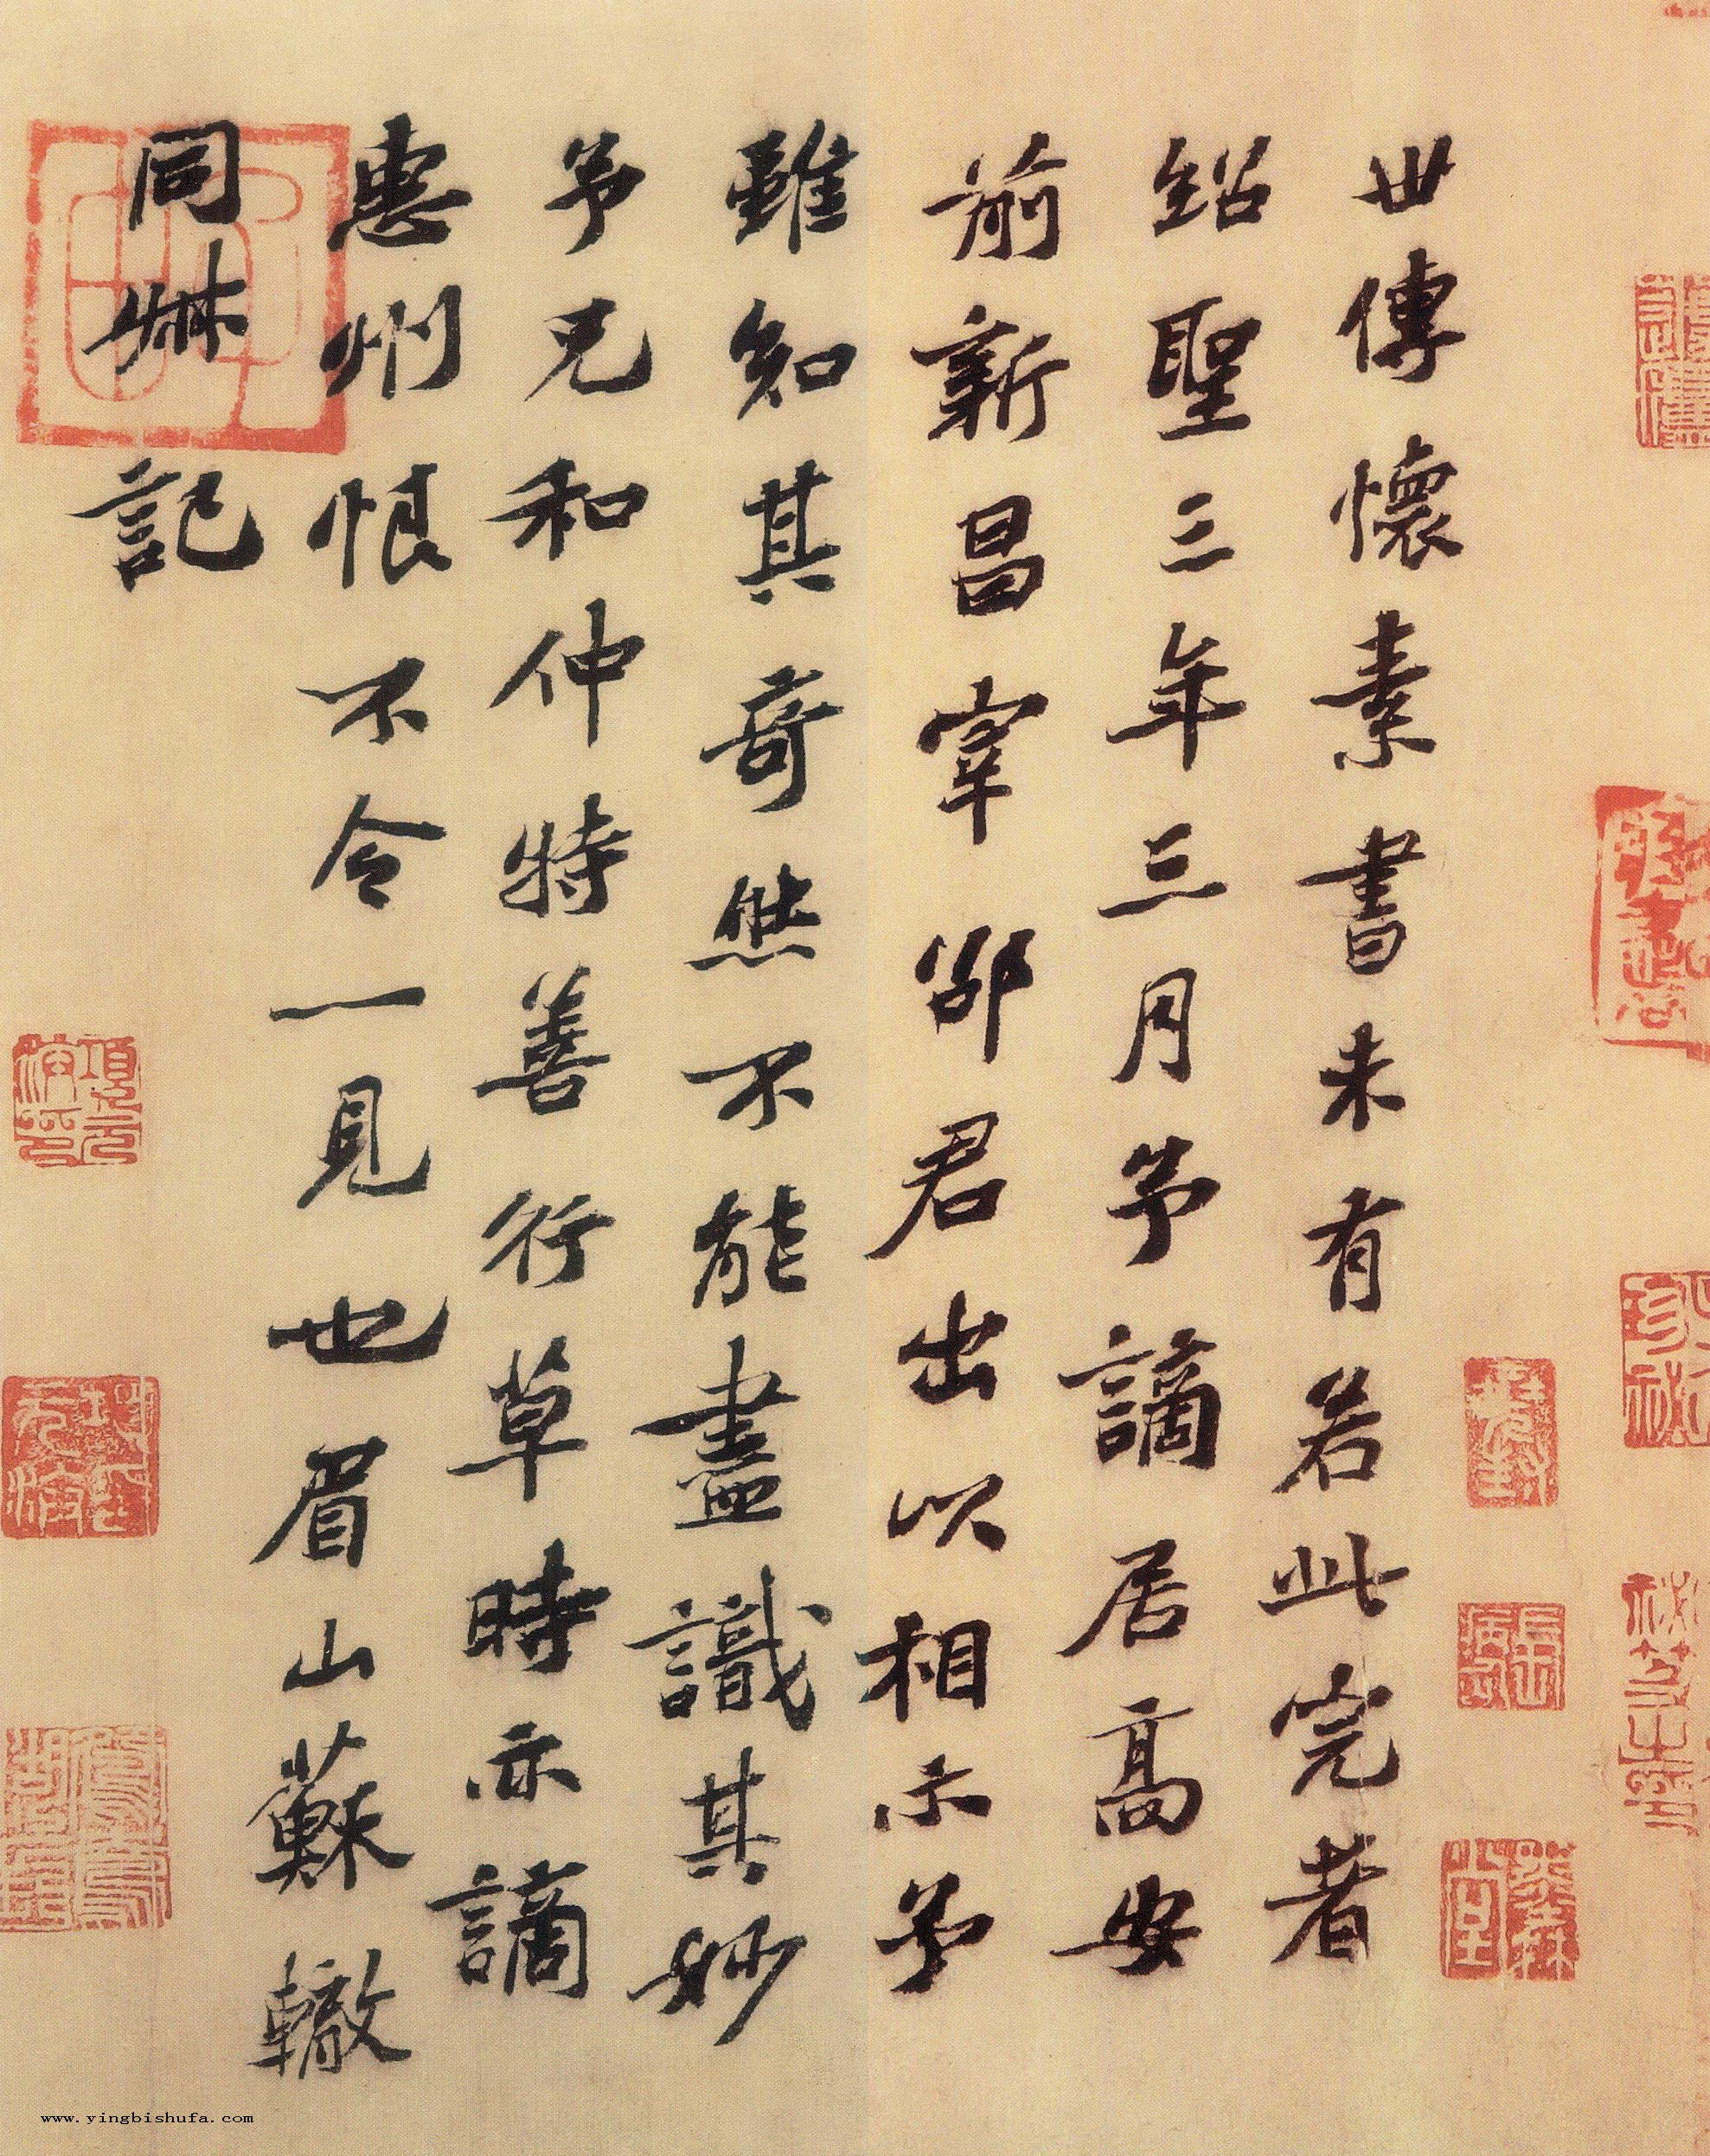 世傳懷素書未有若此完者
紹聖三年三月予謫居高安
前新昌宰邵君出以相示予
雖知其奇然不能盡識其妙
予兄和仲特善行草時亦謫
惠州恨不令一見也眉山蘇轍
同叔記
www.yingbishufa.com